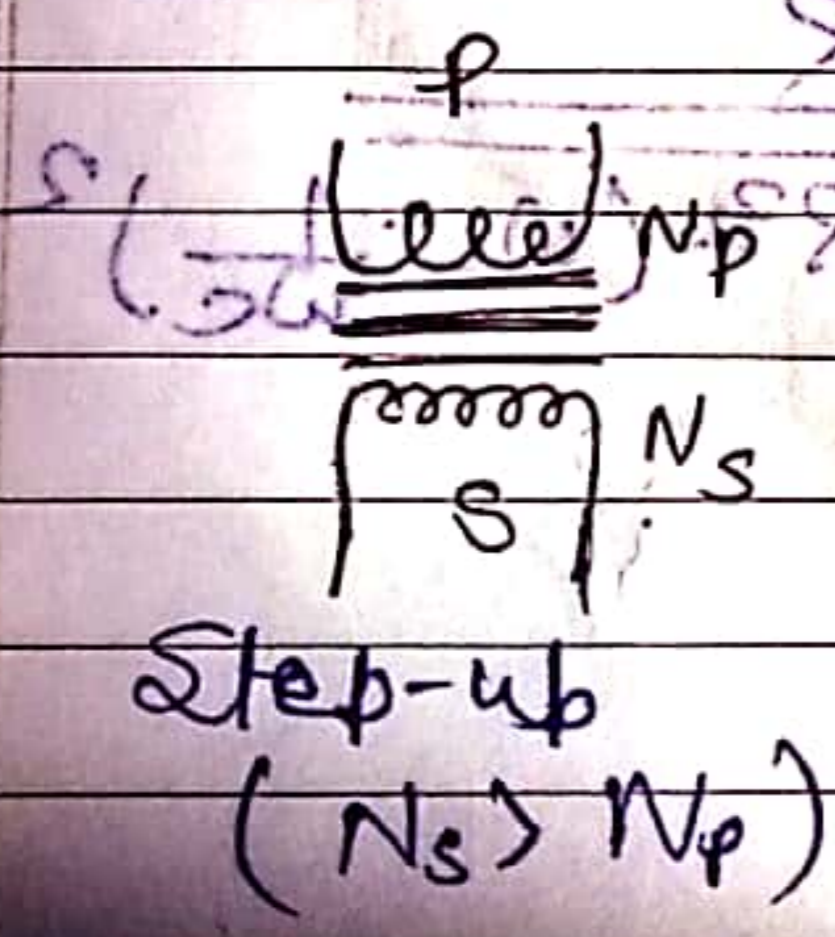 P
Np
Ns
S
Step-up
(Ns > Np)